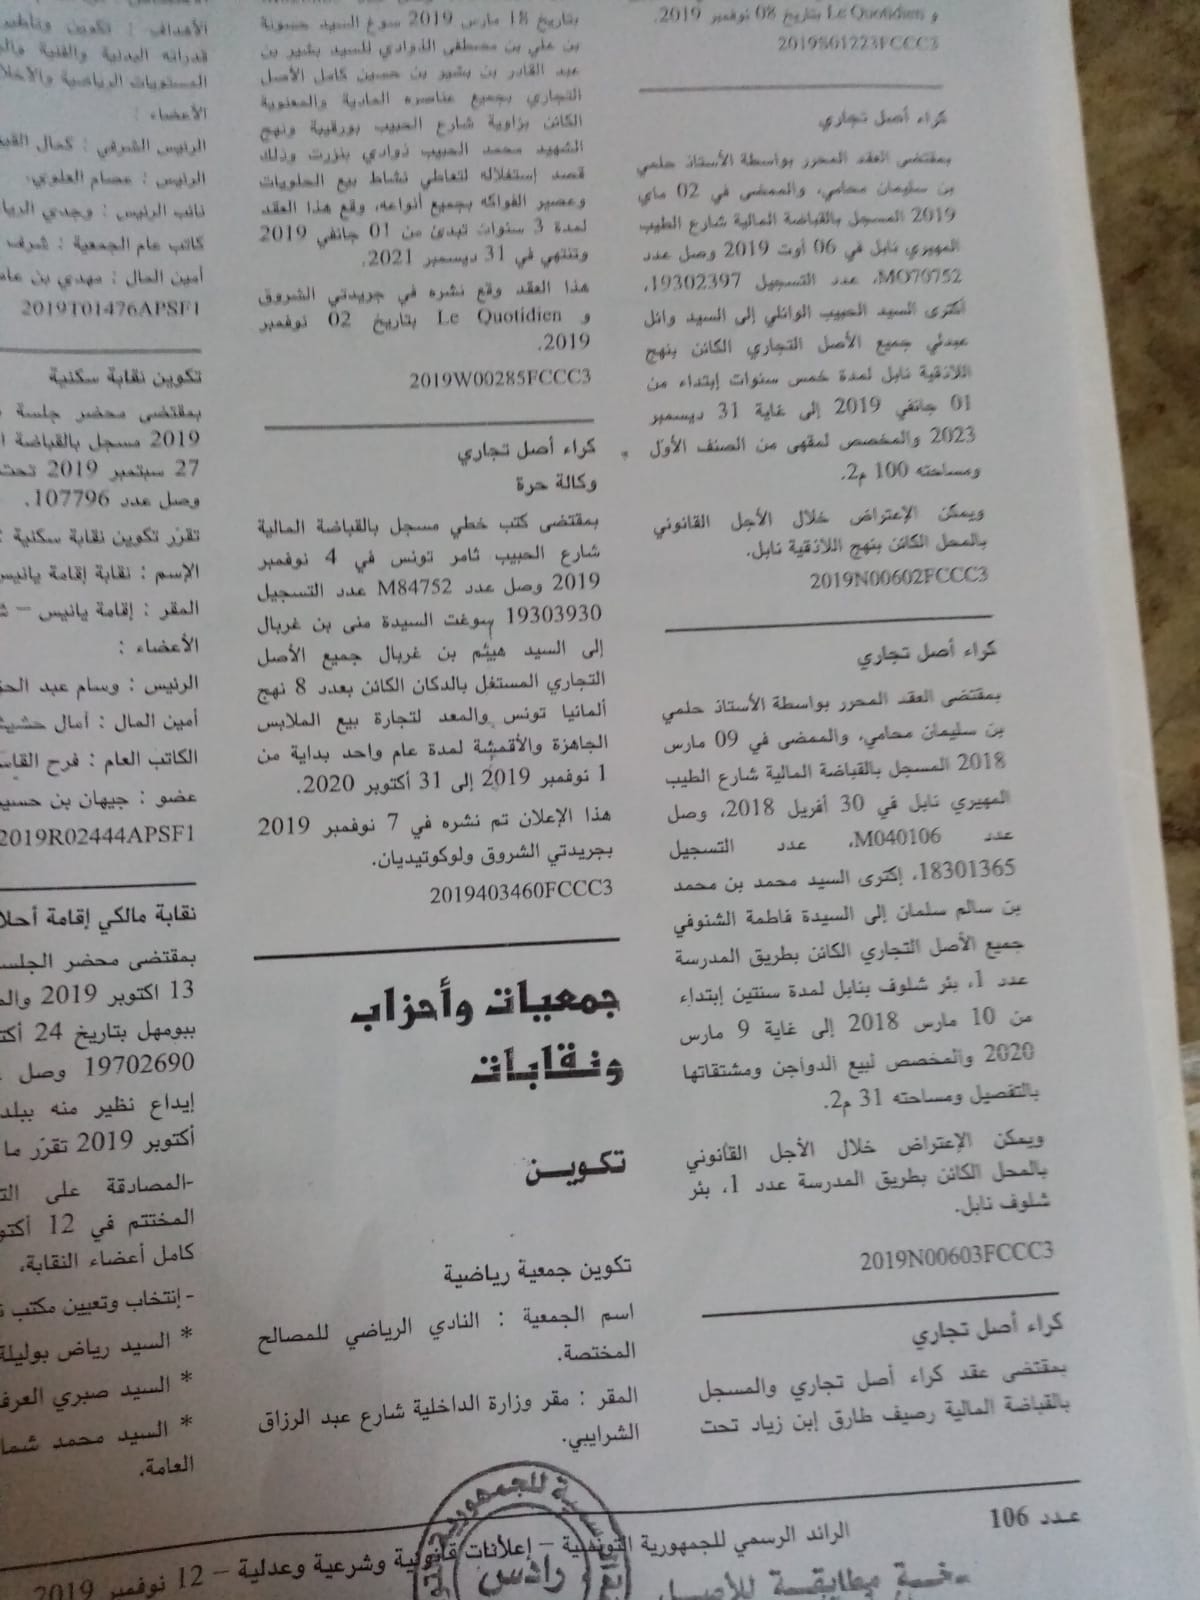 و Le Quotidien بتاريخ 08 نوفمبر 2019.
2019S01223FCCC3
كراء أصل تجاري
بمقتضى العقد المحرر بواسطة الأستاذ حلمي
بن سليمان محامي، والممضى في 02 ماي
2019 المسجل بالقباضة المالية شارع الطيب
المهيري نابل في 06 أوت 2019 وصل عدد
MO70752، عدد التسجيل 19302397،
أكترى السيد الحبيب الوائلي إلى السيد وائل
عبدلي جميع الأصل التجاري الكائن بنهج
اللاذقية نابل لمدة خمس سنوات إبتداء من
01 جانفي 2019 إلى غاية 31 ديسمبر
2023 والمخصص لمقهى من الصنف الأول
ومساحته 100 م2.
ويمكن الإعتراض خلال الأجل القانوني
بالمحل الكائن بنهج اللاذقية نابل.
2019N00602FCCC3
كراء أصل تجاري
بمقتضى العقد المحرر بواسطة الأستاذ حلمي
بن سليمان محامي، والممضى في 09 مارس
2018 المسجل بالقباضة المالية شارع الطيب
المهيري نابل في 30 أفريل 2018، وصل
عدد M040106، عدد التسجيل
18301365، إكترى السيد محمد بن محمد
بن سالم سلمان إلى السيدة فاطمة الشنوفي
جميع الأصل التجاري الكائن بطريق المدرسة
عدد 1، بئر شلوف بنابل لمدة سنتين إبتداء
من 10 مارس 2018 إلى غاية 9 مارس
2020 والمخصص لبيع الدواجن ومشتقاتها
بالتفصيل ومساحته 31 م2.
ويمكن الإعتراض خلال الأجل القانوني
بالمحل الكائن بطريق المدرسة عدد 1، بئر
شلوف نابل.
2019N00603FCCC3
كراء أصل تجاري
بمقتضى عقد كراء أصل تجاري والمسجل
بالقباضة المالية رصيف طارق إبن زياد تحت
بتاريخ 18 مارس 2019 سوغ السيد حسونة
بن علي بن مصطفى الذوادي للسيد بشير بن
عبد القادر بن بشير بن حسين كامل الأصل
التجاري بجميع عناصره المادية والمعنوية
الكائن بزاوية شارع الحبيب بورقيبة ونهج
الشهيد محمد الحبيب ذوادي بنزرت وذلك
قصد إستغلاله لتعاطي نشاط بيع الحلويات
وعصير الفواكه بجميع أنواعه، وقع هذا العقد
لمدة 3 سنوات تبتدئ من 01 جانفي 2019
وتنتهي في 31 ديسمبر 2021.
هذا العقد وقع نشره في جريدتي الشروق
و Le Quotidien بتاريخ 02 نوفمبر
2019.
2019W00285FCCC3
كراء أصل تجاري
وكالة حرة
بمقتضى كتب خطي مسجل بالقباضة المالية
شارع الحبيب ثامر تونس في 4 نوفمبر
2019 وصل عدد M84752 عدد التسجيل
19303930 سوغت السيدة منى بن غربال
إلى السيد هيثم بن غربال جميع الأصل
التجاري المستغل بالدكان الكائن بعدد 8 نهج
ألمانيا تونس والمعد لتجارة بيع الملابس
الجاهزة والأقمشة لمدة عام واحد بداية من
1 نوفمبر 2019 إلى 31 أكتوبر 2020.
هذا الإعلان تم نشره في 7 نوفمبر 2019
بجريدتي الشروق ولوكوتيديان.
2019403460FCCC3
جمعيات وأحزاب
ونقابات
تكوين
تكوين جمعية رياضية
اسم الجمعية : النادي الرياضي للمصالح
المختصة.
المقر : مقر وزارة الداخلية شارع عبد الرزاق
الشرايبي.
الأهداف : تكوين
قدراته البدنية والفنية
المستويات الرياضية
الأعضاء :
الرئيس الشرفي : كمال
الرئيس : عصام العلوي.
نائب الرئيس : وجدي
كاتب عام الجمعية : شرف
أمين المال : مهدي بن
2019T01476APSF1
تكوين نقابة سكنية
بمقتضى محضر جلسة
2019 مسجل بالقباضة
27 سبتمبر 2019 تحت
وصل عدد 107796.
تقرر تكوين نقابة سكنية :
الإسم : نقابة إقامة يانيس
المقر : إقامة يانيس –
الأعضاء :
الرئيس : وسام عبد
أمين المال : أمال
الكاتب العام : فرح
عضو : جيهان بن
2019R02444APSF1
نقابة مالكي إقامة
بمقتضى محضر
13 اكتوبر 2019
ببومهل بتاريخ 24
19702690 وصل
إيداع نظير منه
أكتوبر 2019 تقرر ما
-المصادقة على
المختتم في 12
كامل أعضاء النقابة.
- إنتخاب وتعيين مكتب
* السيد رياض بوليلة
* السيد صبري
* السيد محمد
العامة.
عـدد 106
الرائد الرسمي للجمهورية التونسية – إعلانات قانونية وشرعية وعدلية – 12 نوفمبر 2019
رادس
مطابقة للأصل